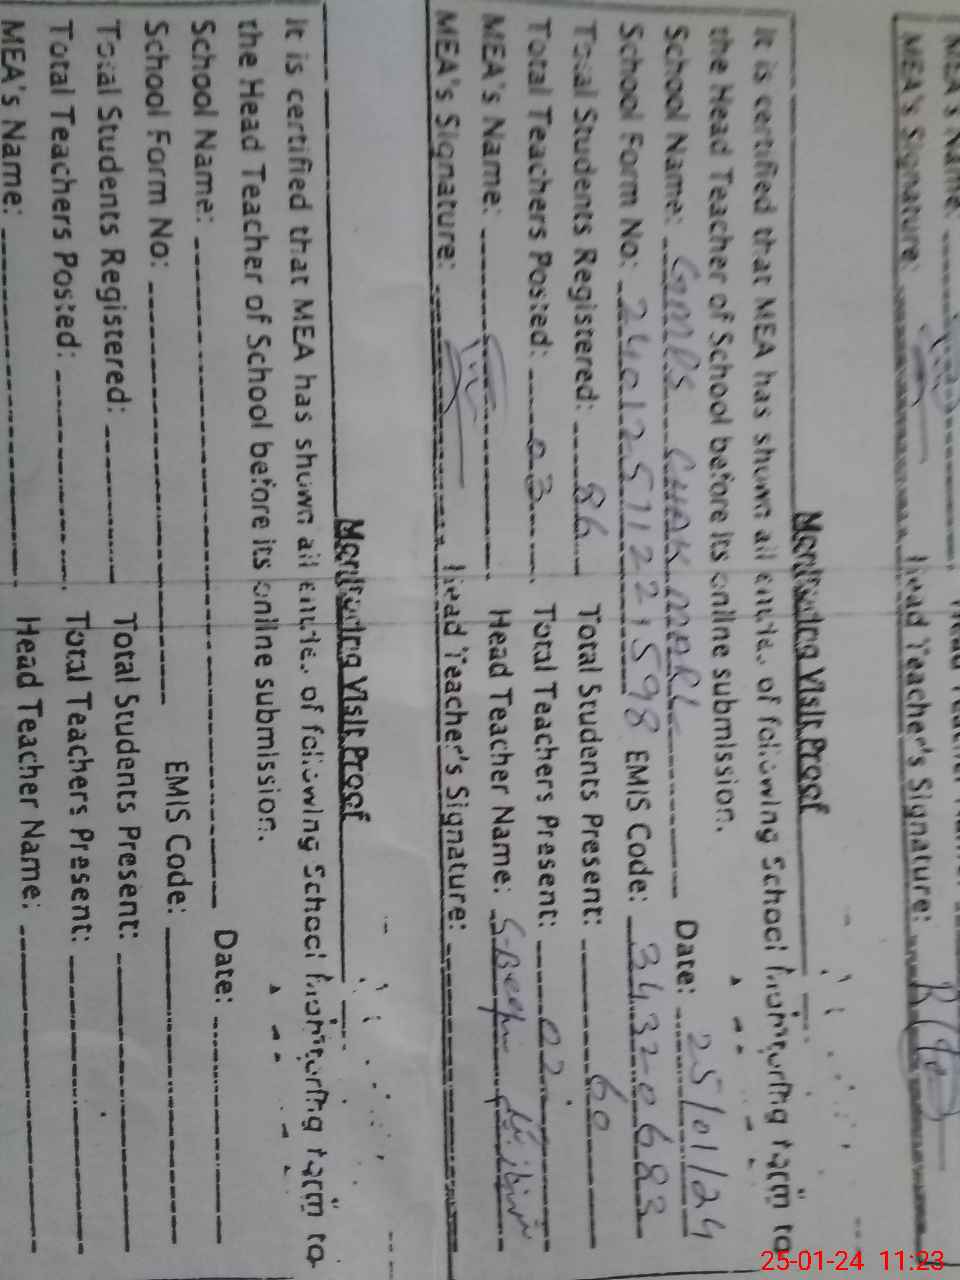 MEA's Name:
MEA's Signature: Head Teacher's Signature:
Monitoring Visit Proof
It is certified that MEA has shown all entries of following School Monitoring Form to
the Head Teacher of School before its online submission.
School Name: GMPS CHAK Date: 25/01/24
School Form No: EMIS Code: 34320683
Total Students Registered: 86 Total Students Present: 60
Total Teachers Posted: 03 Total Teachers Present: 02
MEA's Name: Head Teacher Name:
MEA's Signature: Head Teacher's Signature:
Monitoring Visit Proof
It is certified that MEA has shown all entries of following School Monitoring Form to
the Head Teacher of School before its online submission.
School Name: Date:
School Form No: EMIS Code:
Total Students Registered: Total Students Present:
Total Teachers Posted: Total Teachers Present:
MEA's Name: Head Teacher Name:
25-01-24 11:23